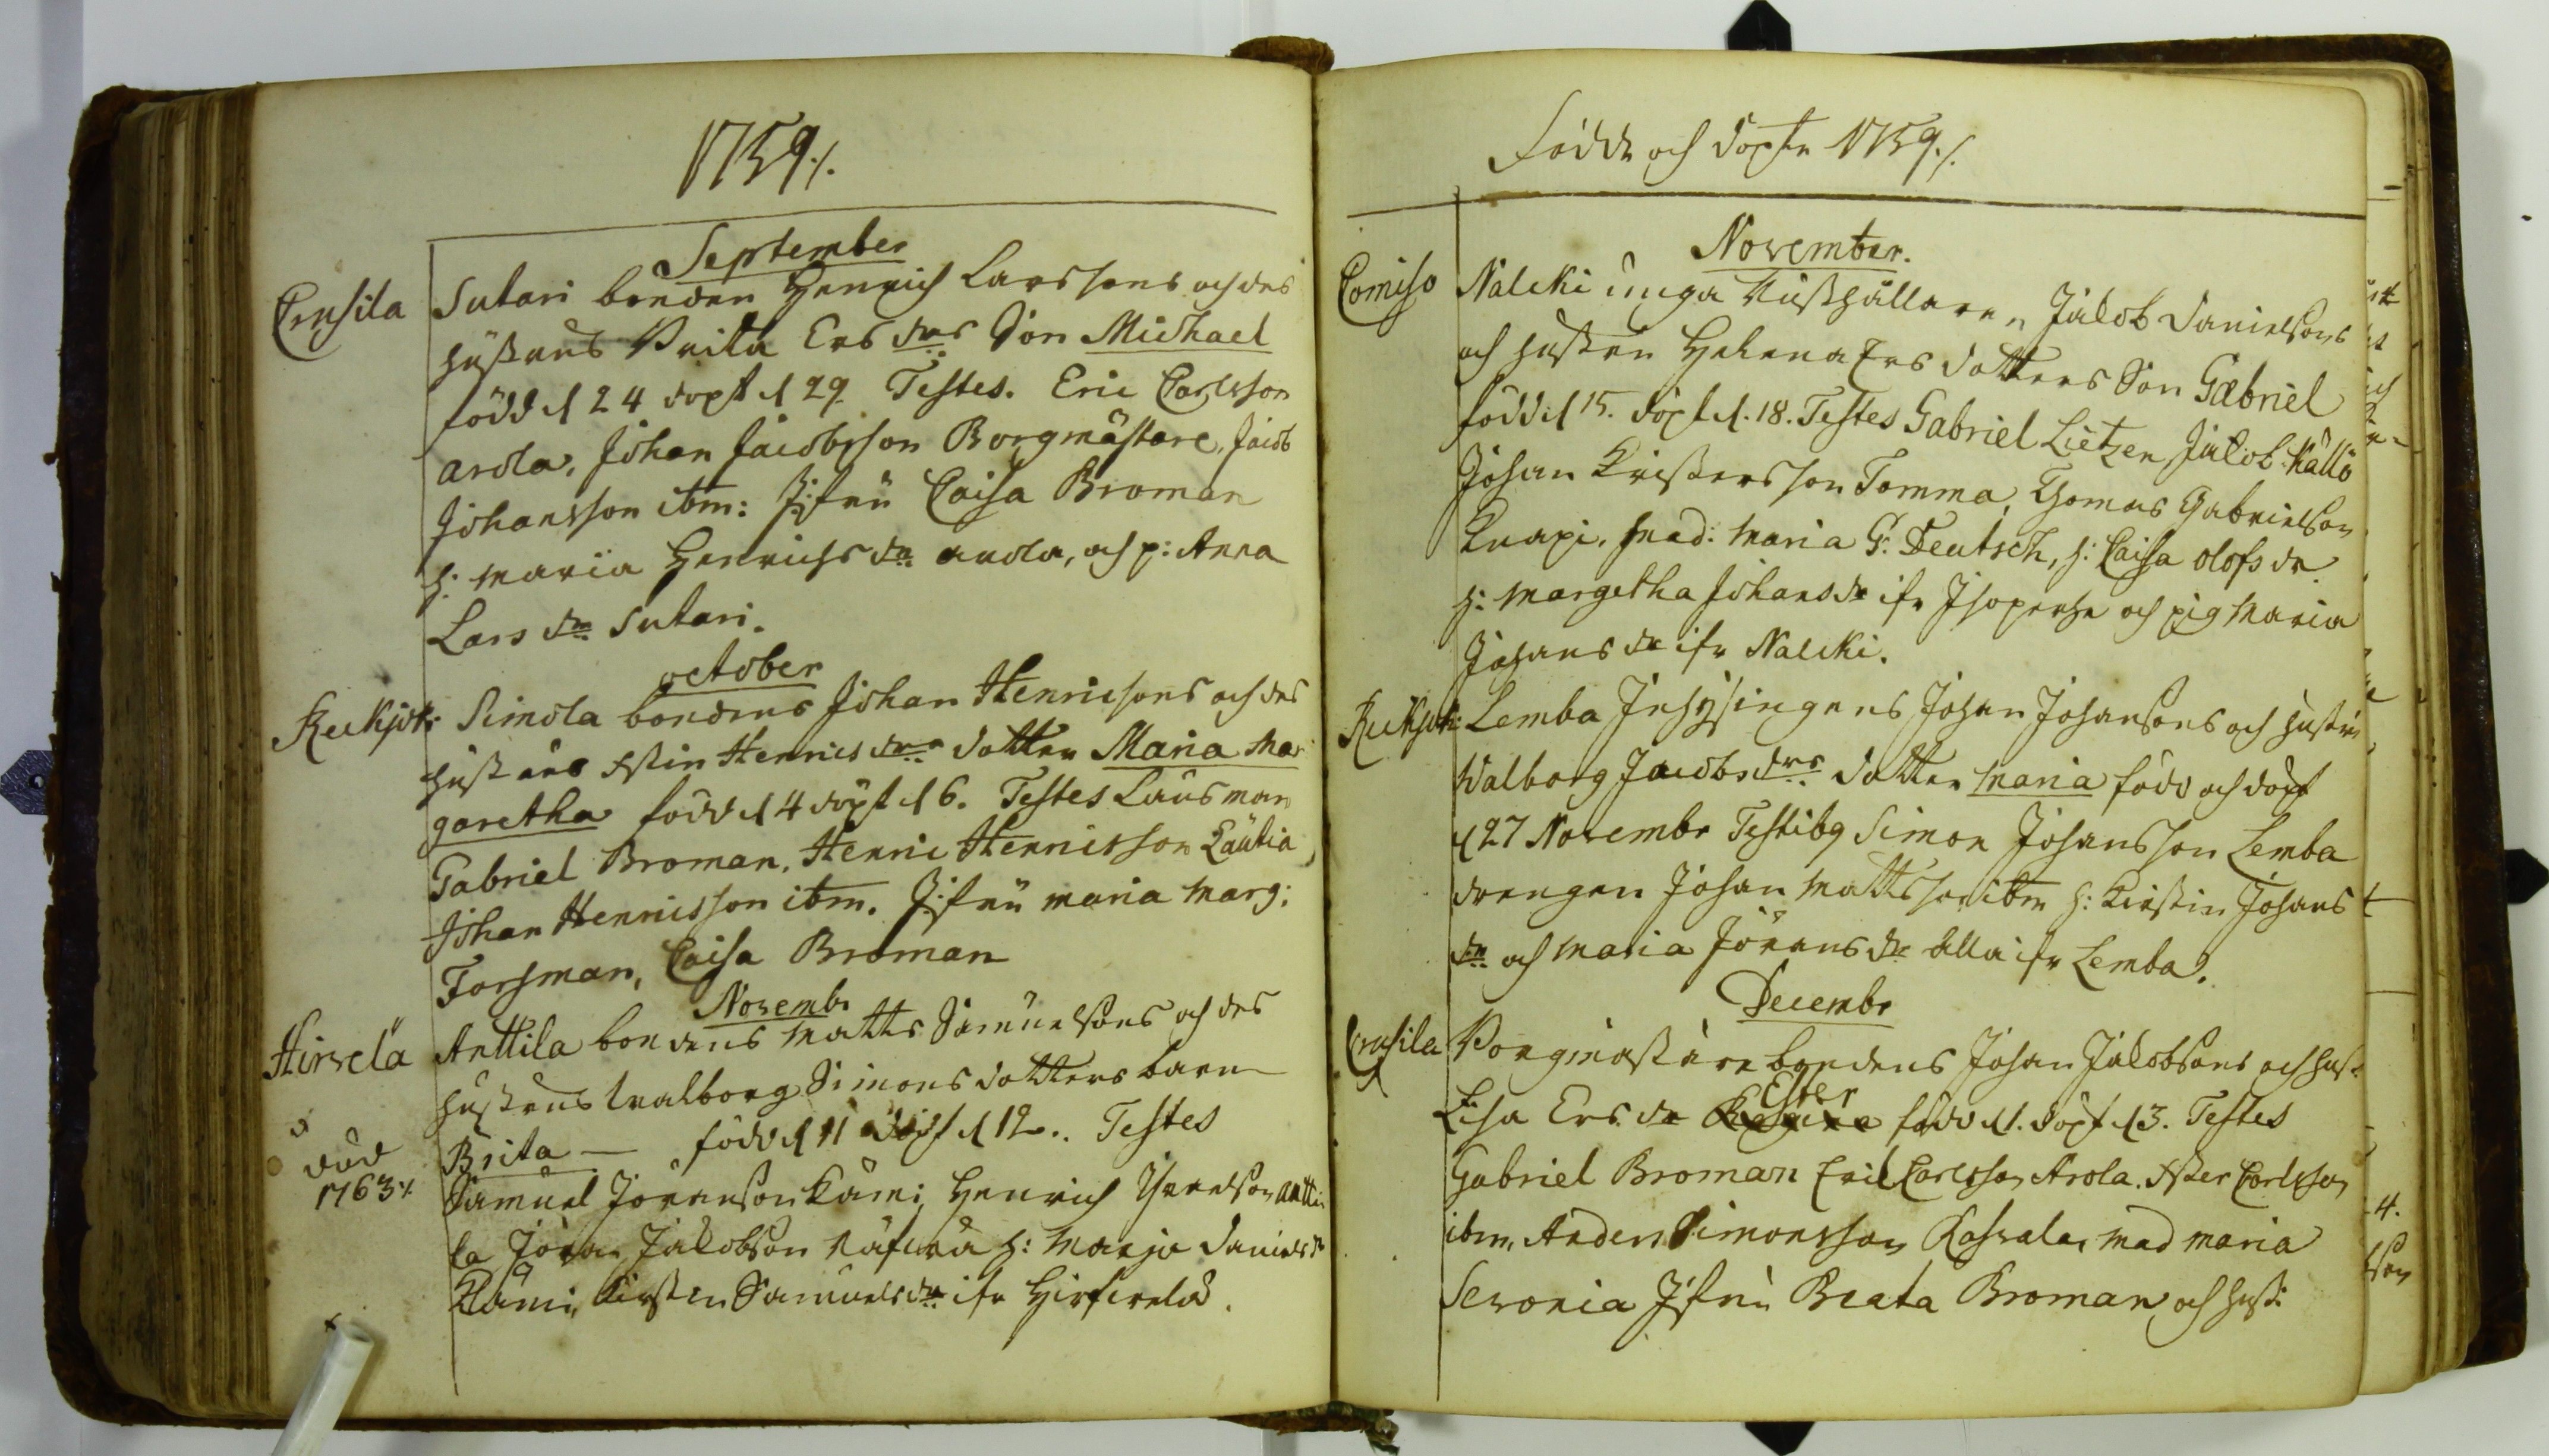 1759./.
September
Crusila Sutari bonden Henrich Larssons och des
hustrus Brita Ers drs Son Michael
född d 24 döpt d 29 Testes. Eric Carlsson
arola, Johan Jacobsson Borgmästare, Jacob
Johansson ibm: Jfru Caisa Broman
h: Maria Henrichs dr arola, och p: Anna
Lars dr Sutari.
october
Simola bondens Johan Henricsons och des
hustrus Henrics drs dotter Maria Mar
garetha född d 4 döpt d 6. Testes Länsman
Gabriel Broman, Henric Henricsson Lautia
Johan Henricsson ibm. Jfru Maria Marg:
Forsman, Caisa Broman
Novembr
Hirvelä Anttila bondens Matts Samuelsons och des
hustrus Walborg Simons dotters barn
död Brita — född d 11 döpt d 12.. Testes
1763 ./. Samuel Jöranson Kämi, Henrich antti
la Jöran Jakobson h: Marja Daniels dr
Kämi, Kirstin Samuels dr ifr Hirfwelä.
Födde och döpte 1759./.
November.
Comiso Nalcki unga Rusthållaren Jakob Danielsons
och hustrun Helena Ers dotters Son Gabriel
född d 15. döpt d. 18. Testes Gabriel Lietzen, Jakob Källö
Johan Kristersson Tomma, Thomas Gabrielson
Knapi, Mad: Maria G: Deutsch, h: Caisa olofs dr
h: Margetha Johans dr ifr och pig Maria
Johans dr ifr Nalcki.
Lemba Inhysingens Johan Johansons och hustru
Walborg Jacobs drs dotter Maria född och döpt
d 27 Novembr Testibg Simon Johansson Lemba
drengen Johan Mattsson ibm h: Kirstin Johans
dr och Maria Jörans dr alla ifr Lemba.
Decembr
Crusila Borgmästare bondens Johan Jakobsons och hust.
Ester
Lisa Ers. dr född d 1. döpt d 3. Testes
Gabriel Broman Eric Carlsson Arola. Ester Carlsson
ibm, Anders Simonsson Mad Maria
Servonia Jfru Beata Broman och hust: